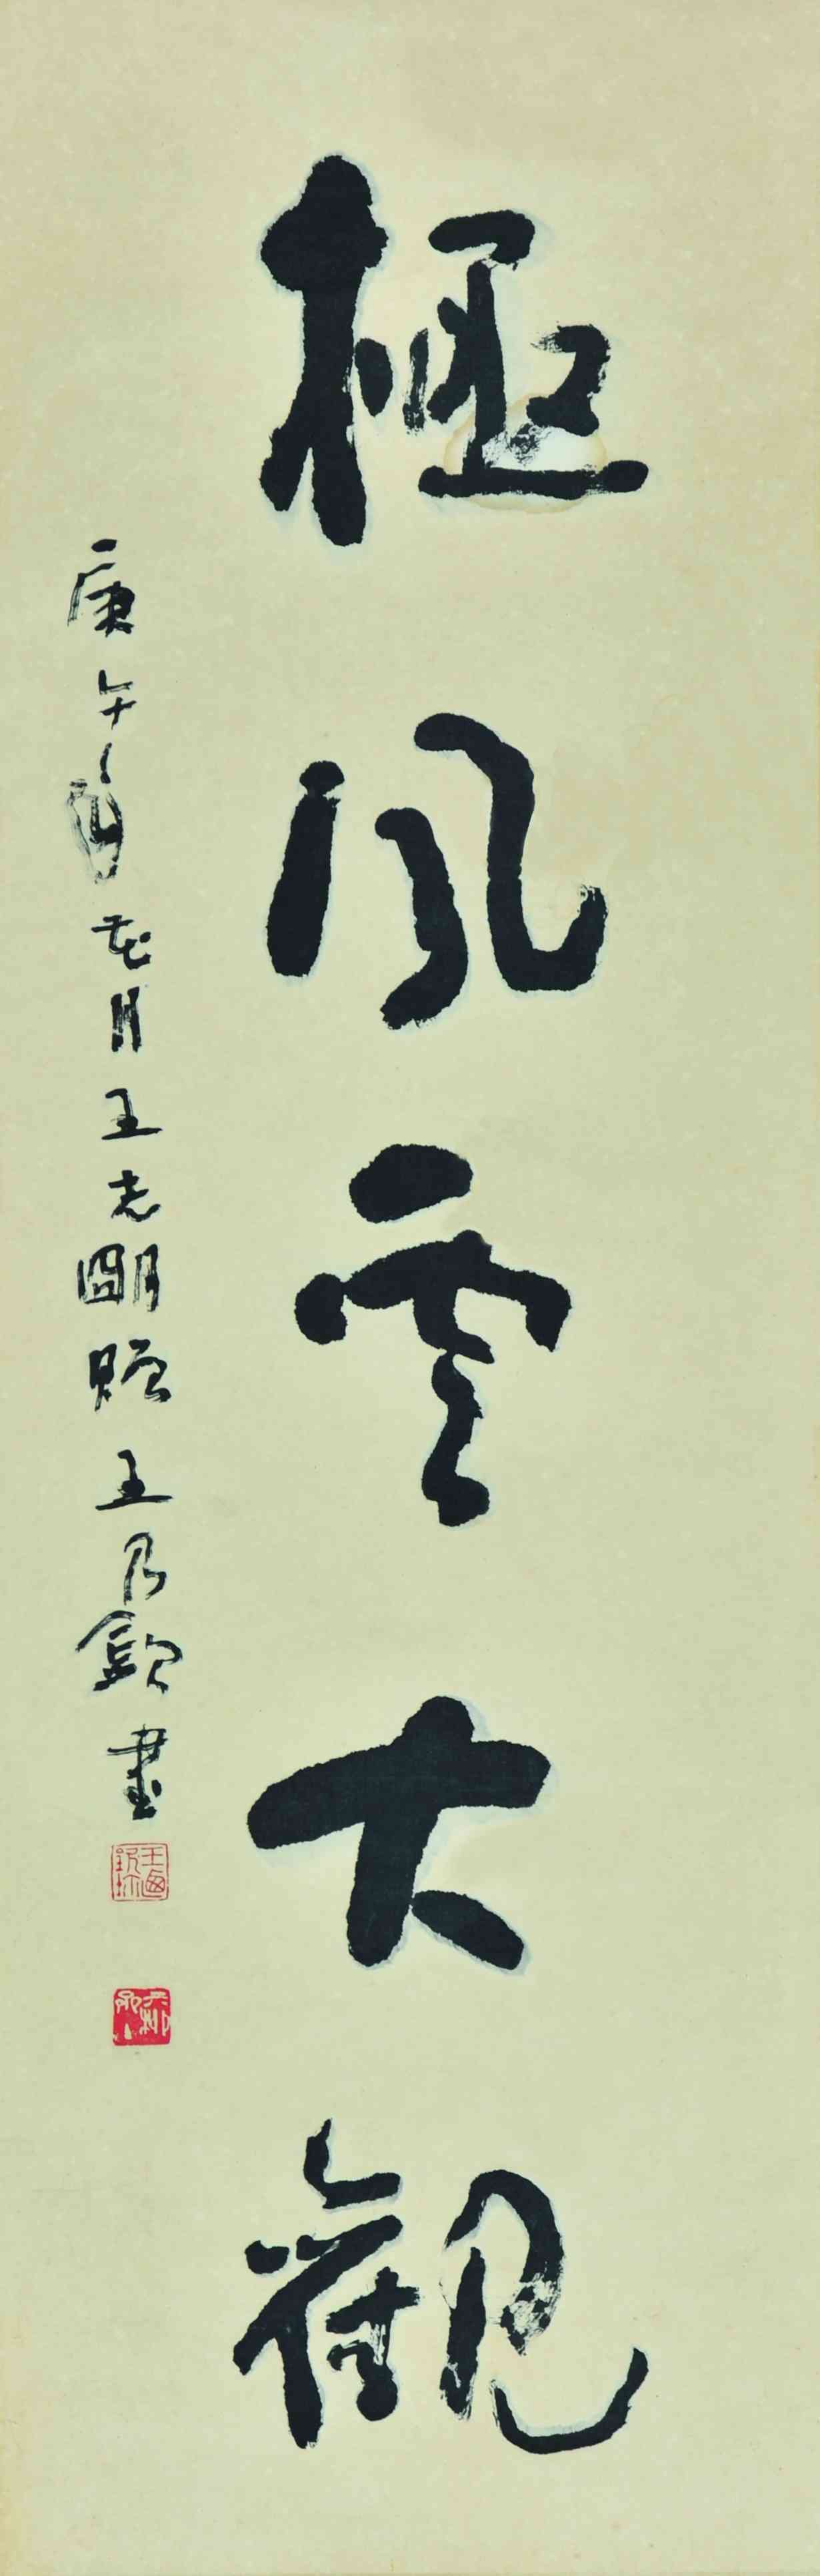 極風雲大觀
庚午年花月王志剛題王乃欽書